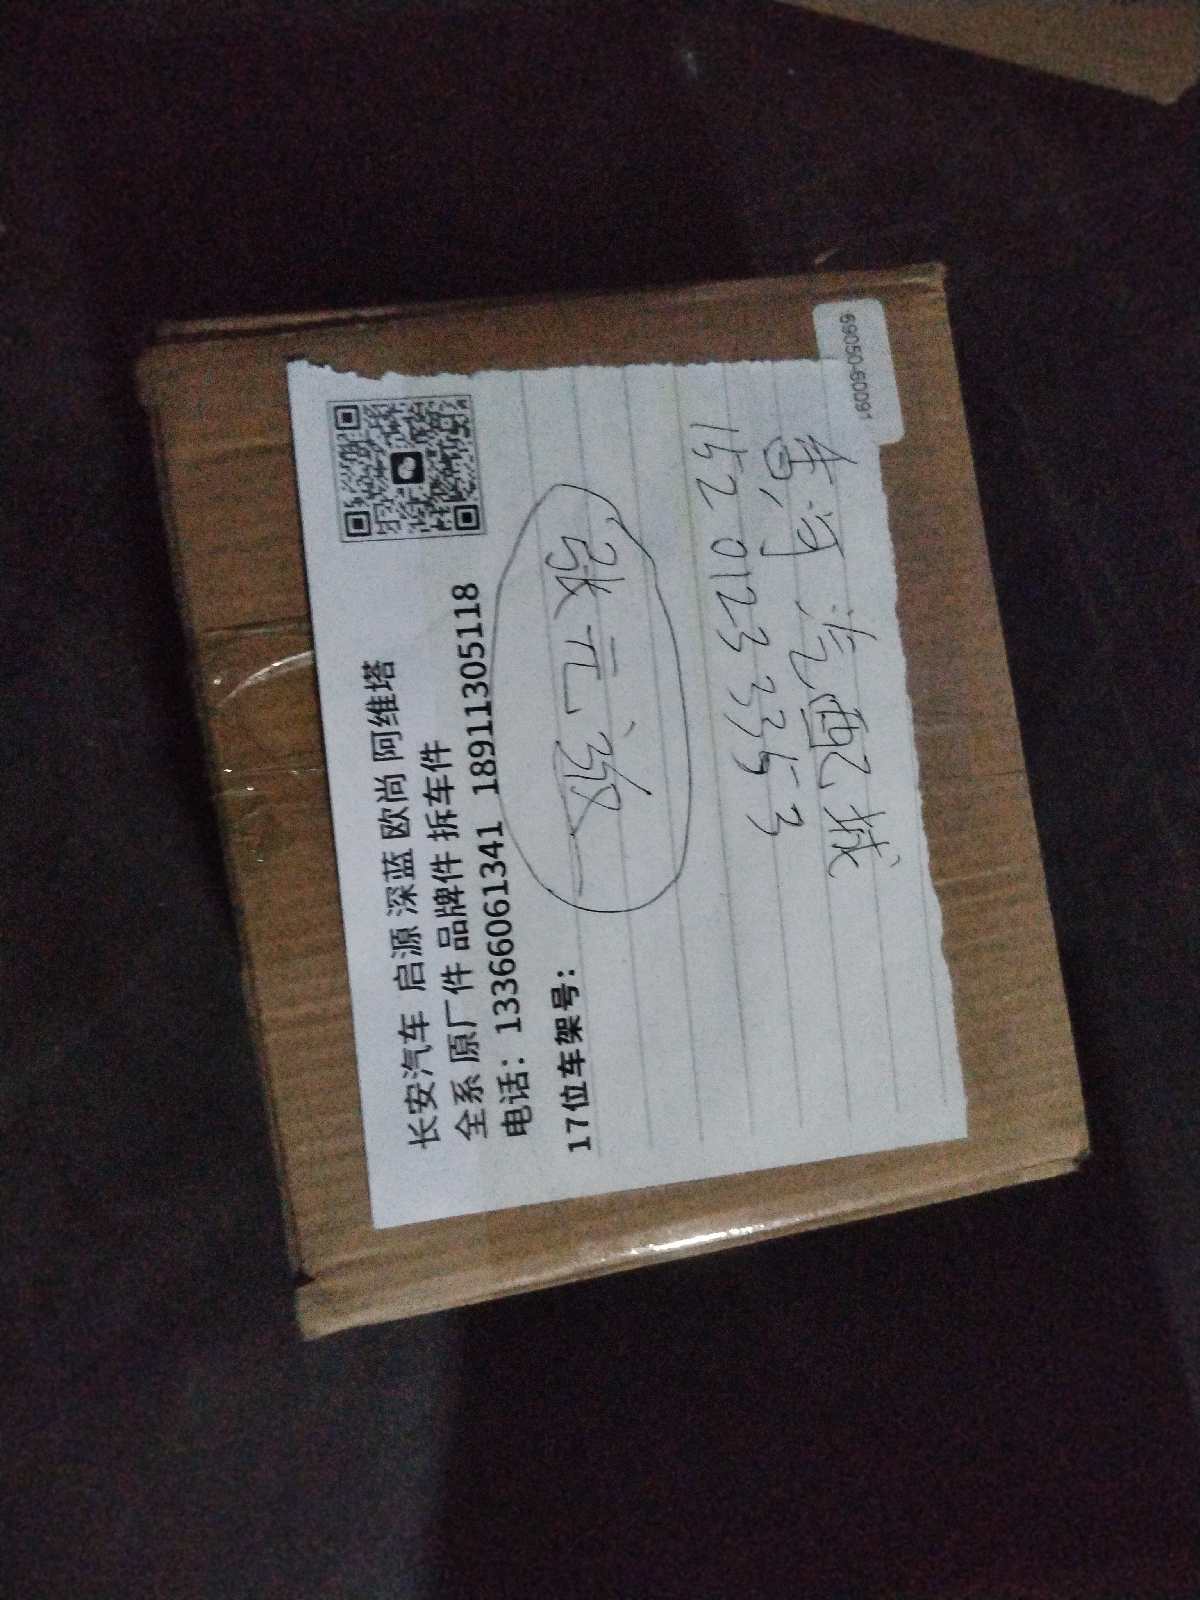 长安汽车 启源 深蓝 欧尚 阿维塔
全系 原厂件 品牌件 拆车件
电话：13366061341 18911305118
17位车架号：
张元
152 0123 3353
香河汽配城
69050-60091